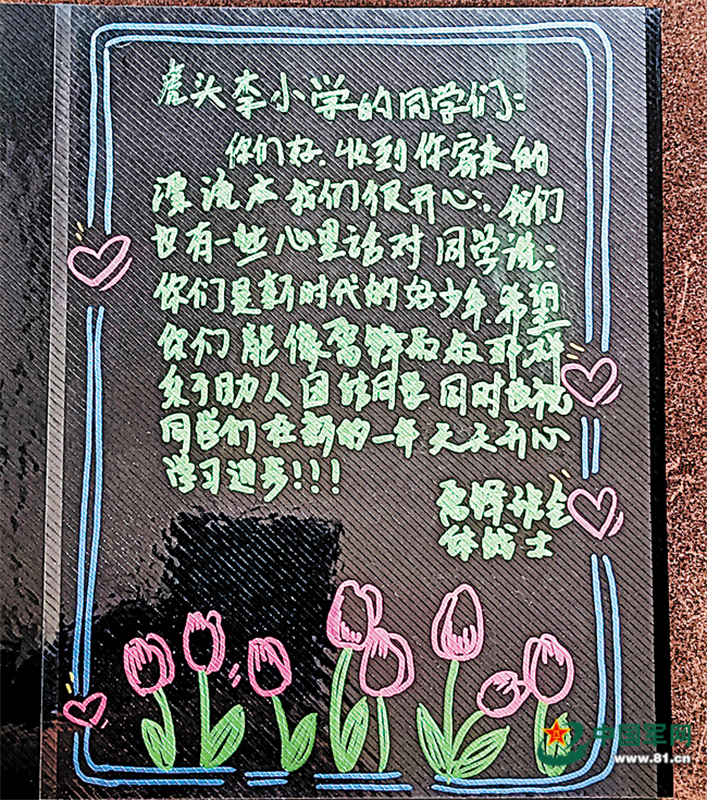 虎头李小学的同学们：
你们好，收到你寄来的
漂流本我们很开心，我们
也有一些心里话对同学说：
你们是新时代的好少年，希望
你们能像雷锋叔叔那样
乐于助人团结同学 同时也祝
同学们在新的一年天天开心
学习进步！！！
雷锋班全
体战士
中国军网
www.81.cn